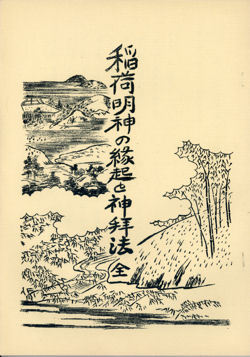 稲荷明神の縁起と神拝法 全